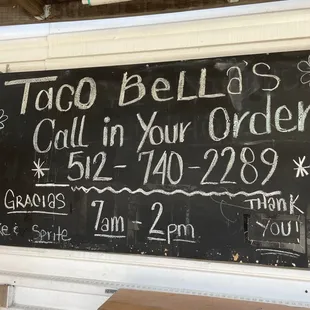 Taco Bella's
Call in Your Order
*512-740-2289*
Gracias 7am - 2pm Thank
You!
& Sprite